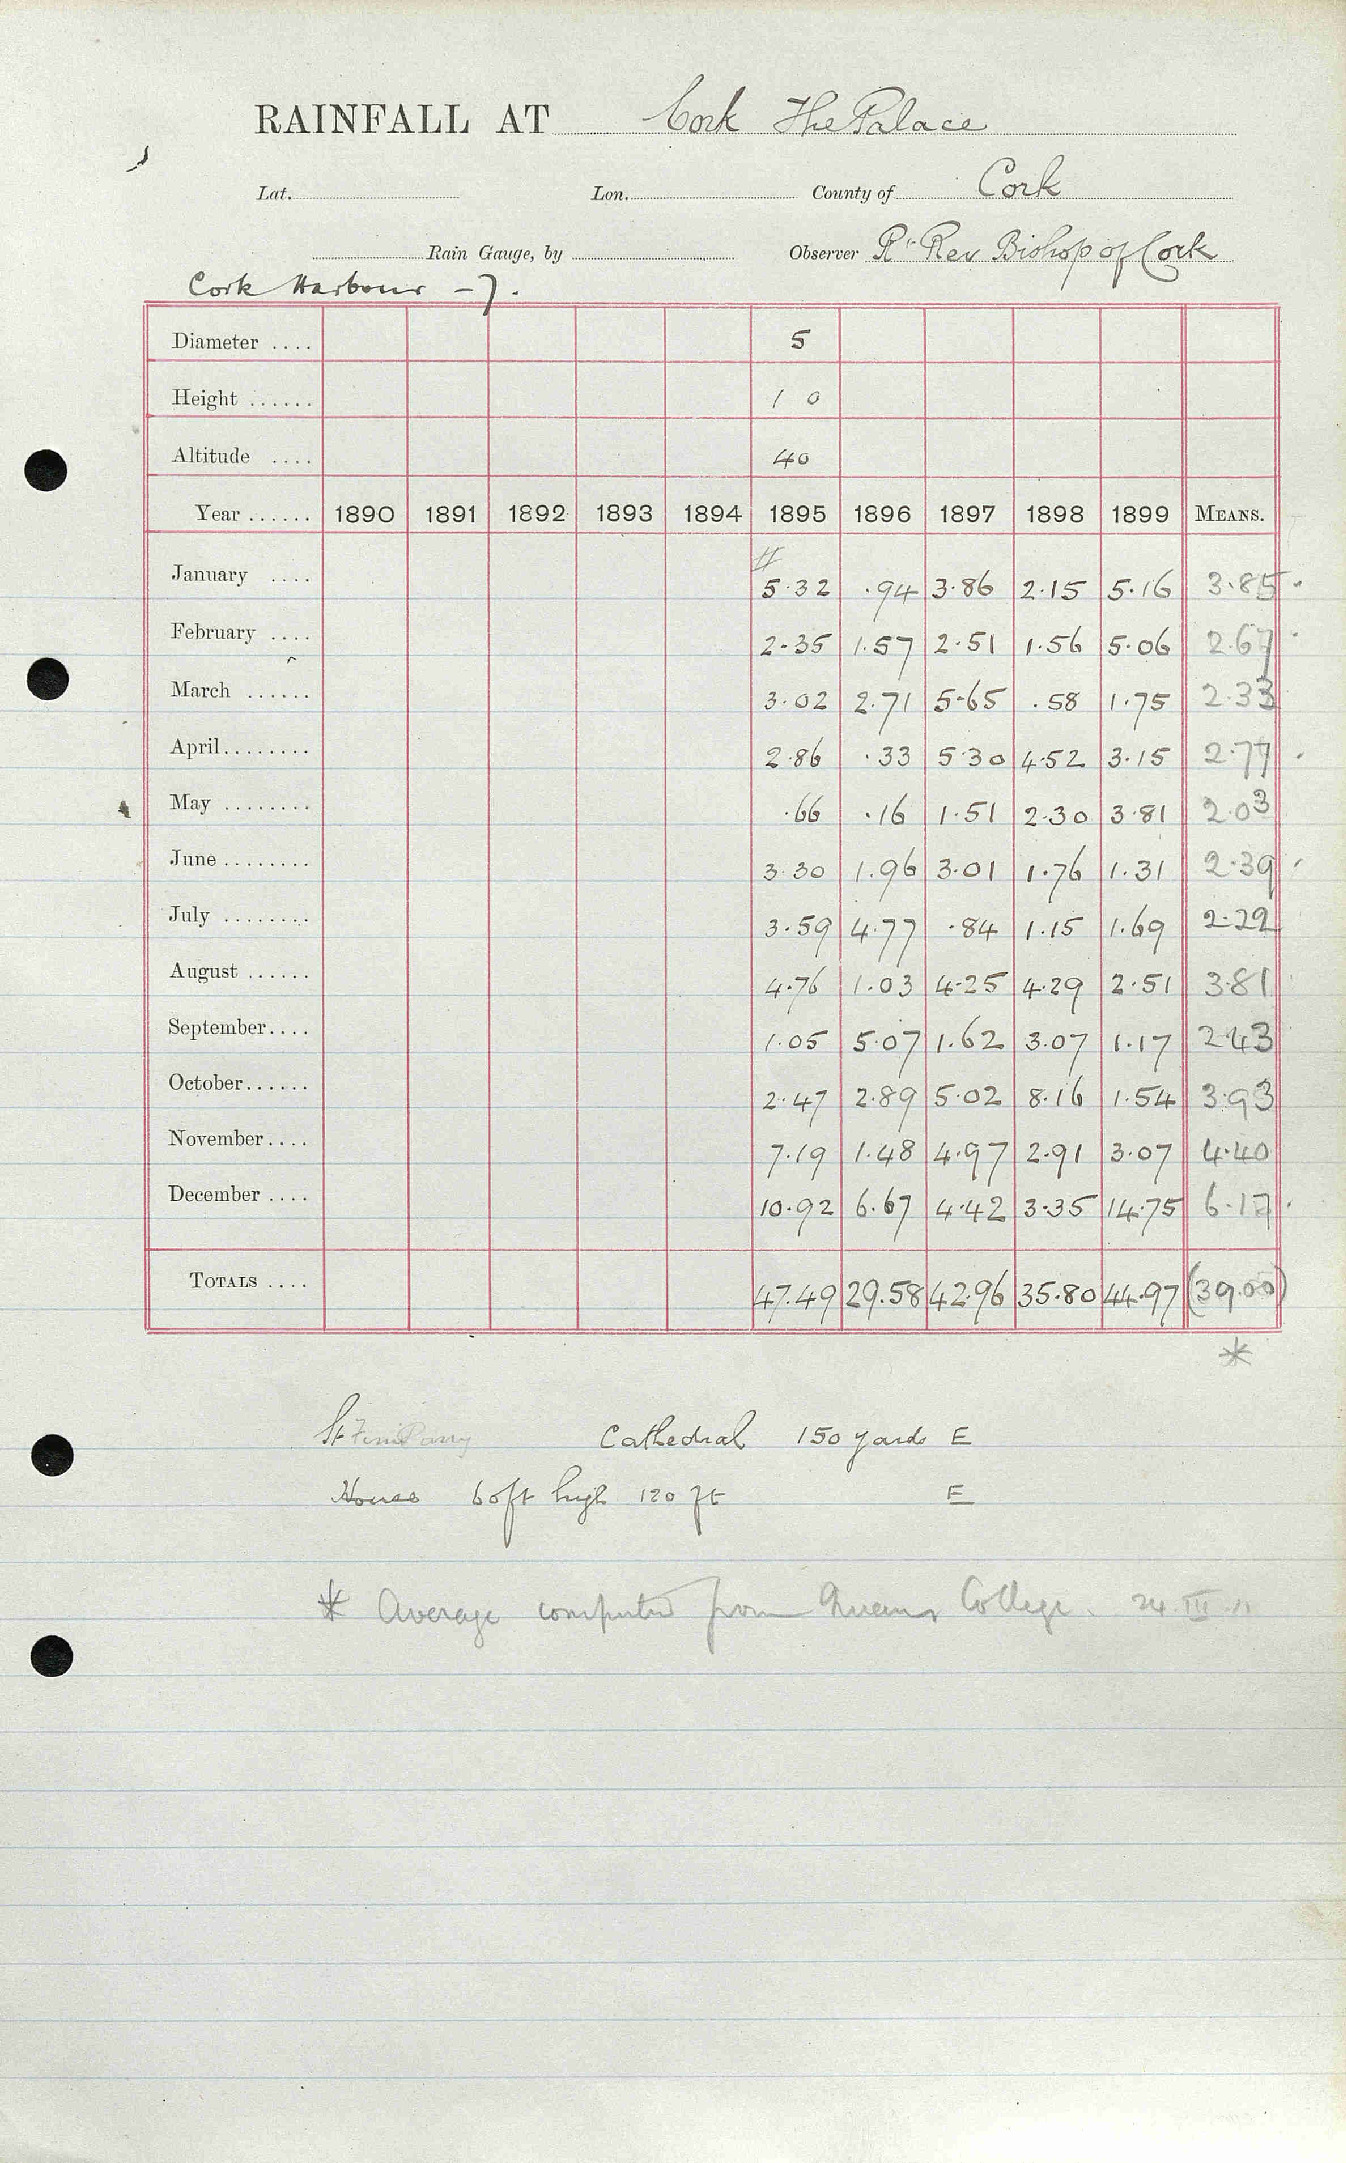 RAINFALL AT Cork The Palace
Lat. Lon. County of Cork
Rain Gauge, by Observer Rt Rev Bishop of Cork
Cork Harbour - 7.
Diameter .... 5
Height ...... 1 0
Altitude .... 40
Year ...... 1890 1891 1892 1893 1894 1895 1896 1897 1898 1899 MEANS.
January .... 5.32 .94 3.86 2.15 5.16 3.85
February .... 2.35 1.57 2.51 1.56 5.06 2.67
March ...... 3.02 2.71 5.65 .58 1.75 2.33
April........ 2.86 .33 5.30 4.52 3.15 2.77
May ........ .66 .16 1.51 2.30 3.81 2.03
June ........ 3.30 1.96 3.01 1.76 1.31 2.39
July ........ 3.59 4.77 .84 1.15 1.69 2.22
August ...... 4.76 1.03 4.25 4.29 2.51 3.81
September.... 1.05 5.07 1.62 3.07 1.17 2.43
October...... 2.47 2.89 5.02 8.16 1.54 3.93
November.... 7.19 1.48 4.97 2.91 3.07 4.40
December .... 10.92 6.67 4.42 3.35 14.75 6.17
TOTALS .... 47.49 29.58 42.96 35.80 44.97 (39.00)
*
St Cathedral 150 yards E
House 60ft high 120 ft E
* Average computed from Queens College. 24.III.11